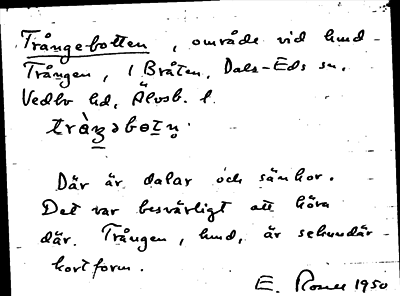 Trångebotten, område vid hmd
Trången, 1 Bråten, Dals-Eds sn.
Vedbo hd, Älvsb. l.
Där är dalar och sänkor.
Det var besvärligt att höra
där. Trången, hmd, är sekundär
kortform.
E. 1950